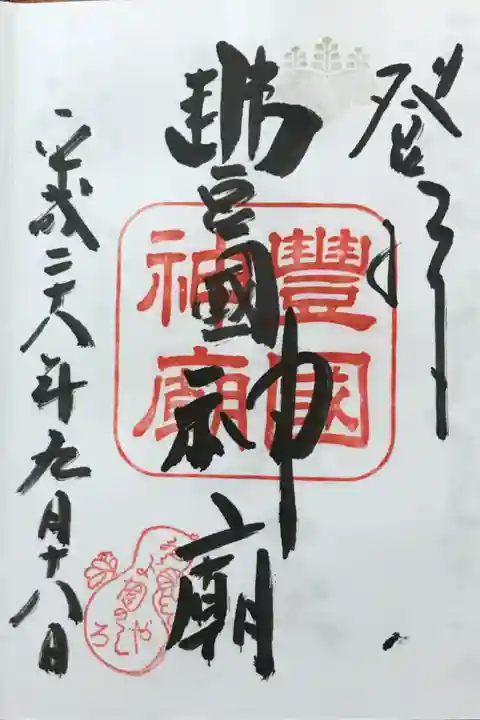 登拝
豐國神廟
豐國神廟
平成二十八年九月十八日